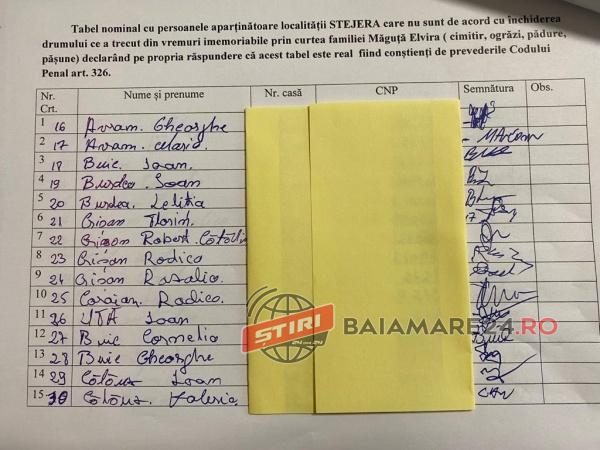 Tabel nominal cu persoanele aparținătoare localității STEJERA care nu sunt de acord cu închiderea
drumului ce a trecut din vremuri imemoriabile prin curtea familiei Măguță Elvira ( cimitir, ogrăzi, pădure,
pășune) declarând pe propria răspundere că acest tabel este real fiind conștienți de prevederile Codului
Penal art. 326.
Nr. Crt. Nume și prenume Nr. casă CNP Semnătura Obs.
1 16 Avram Gheorghe
2 17 Avram Maria
3 18 Buie Ioan
4 19 Burdea Ioan
5 20 Burdea Letitia
6 21 Crișan Florin
7 22 Crișan Robert
8 23 Crișan Rodica
9 24 Crișan Rozalia
10 25 Rodica
11 26 UTĂ Ioan
12 27 Buie Cornelia
13 28 Buie Gheorghe
14 29 Ioan
15 30 Valeria
ȘTIRI
24 din 24
BAIAMARE24.RO